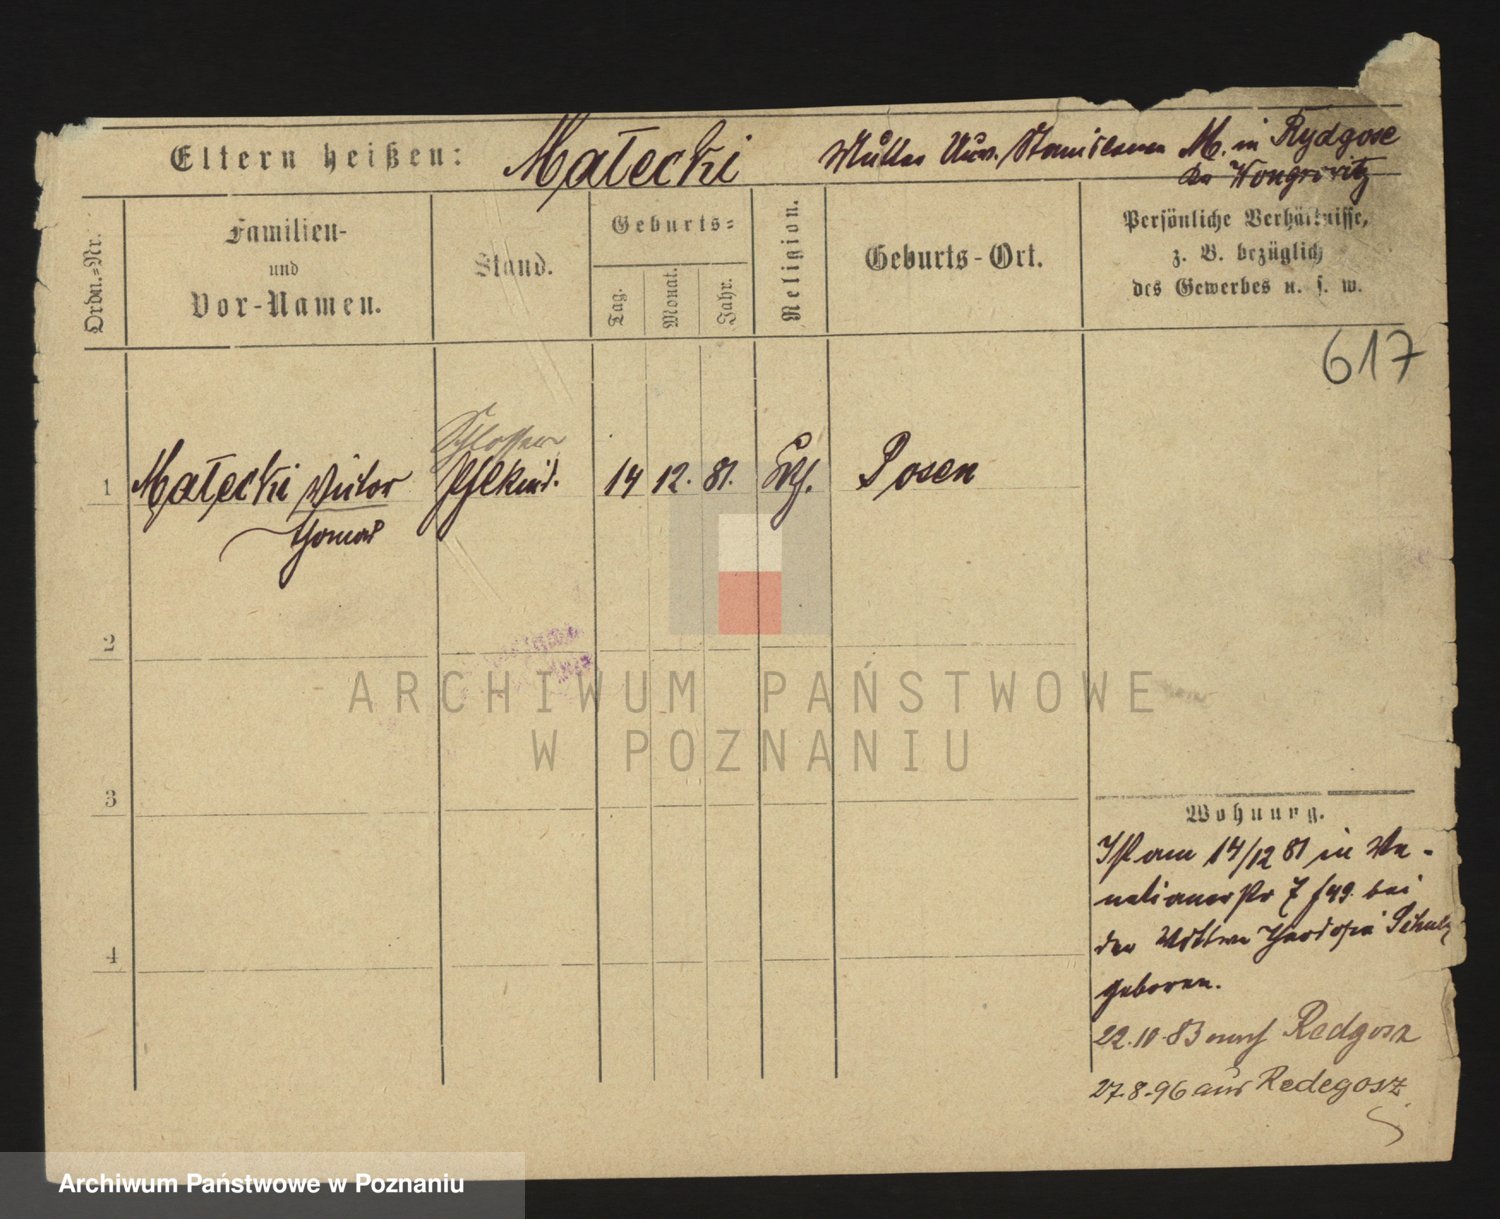 Eltern heißen: Małecki Mutter Unv. Stanislawa M. in Rydgose
Kr Wongrowitz
Ordn.-Nr.
Familien-
und
Vor-Namen.
Stand.
Geburts-
Tag.
Monat.
Jahr.
Religion.
Geburts-Ort.
Persönliche Verhältnisse,
z. B. bezüglich
des Gewerbes u. s. w.
617
Schlosser
1 Małecki Victor Pflkind. 14 12. 81. kth. Posen
Thomas
2
3
4
Wohnung.
Ist am 14/12 81 in Ve-
netianerstr 7 bei
der Wittwe Theodosia Schulz
geboren.
22.10.83 nach Redgosz
27.8.96 aus Redegosz
ARCHIWUM PAŃSTWOWE
W POZNANIU
Archiwum Państwowe w Poznaniu